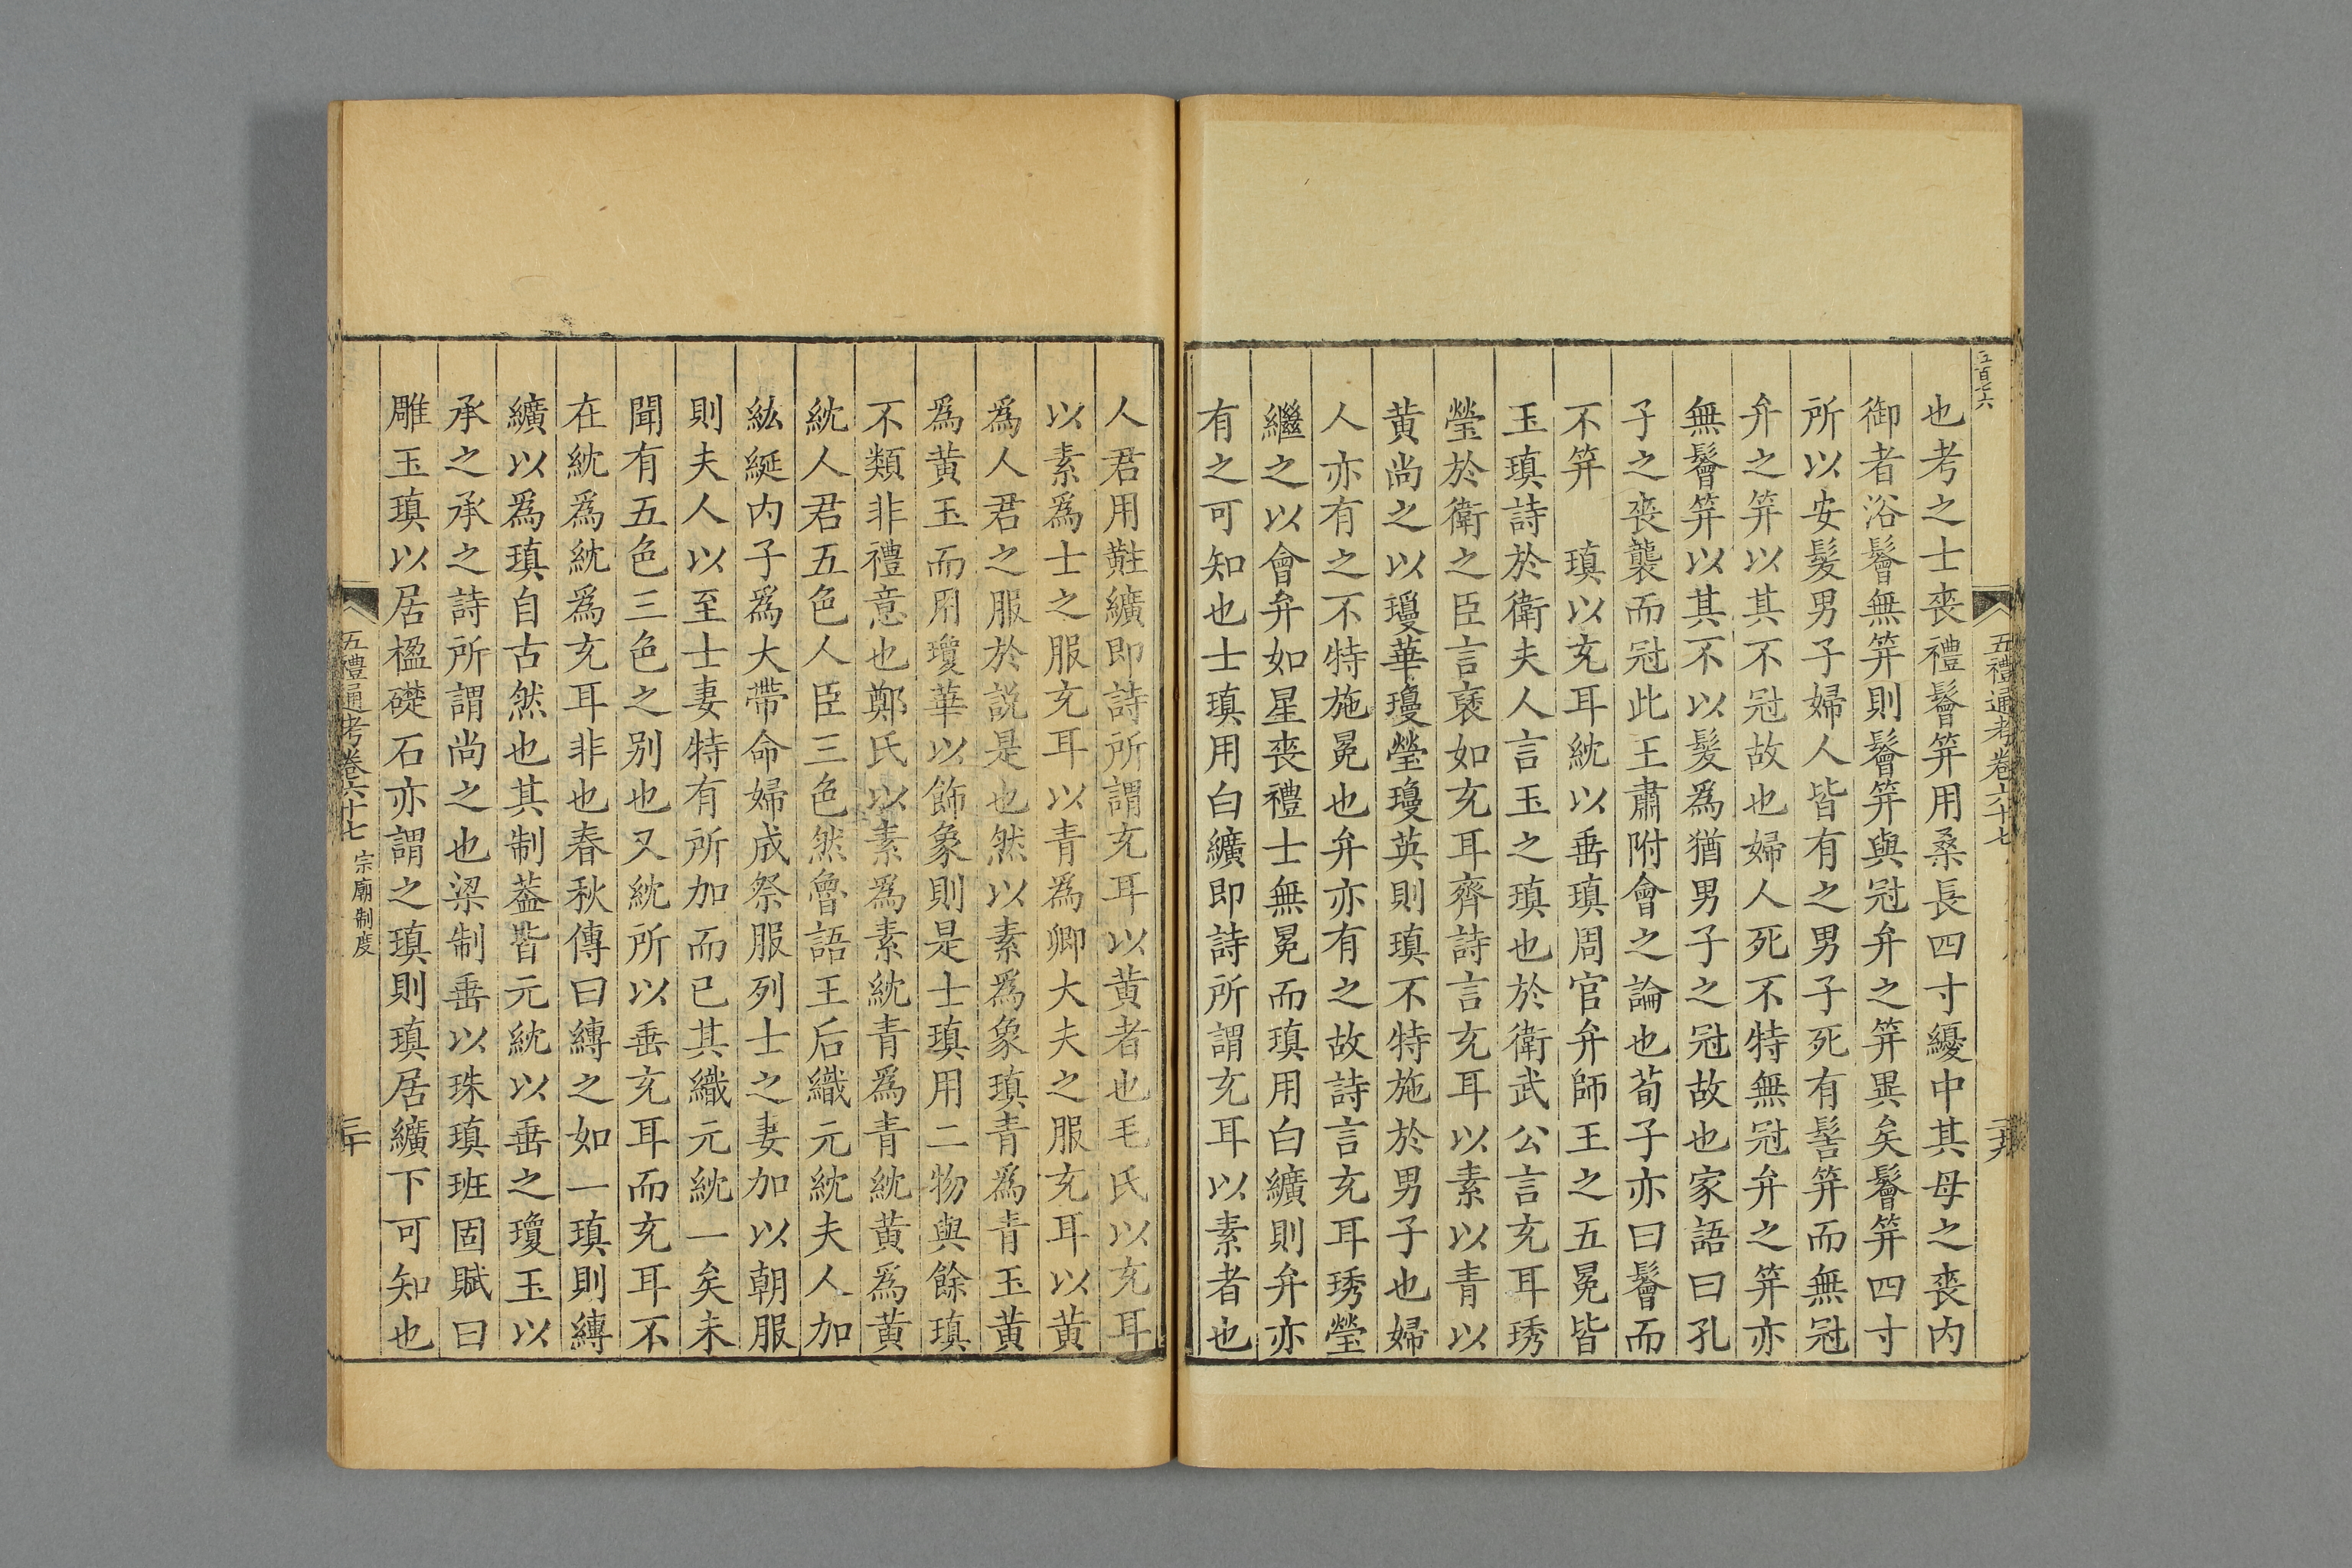 五百七六
五禮通考卷六十七
也考之士喪禮鬠笄用桑長四寸纋中其母之喪内
御者浴鬠無笄則鬠笄與冠弁之笄異矣鬠笄四寸
所以安髪男子婦人皆有之男子死有髺笄而無冠
弁之笄以其不冠故也婦人死不特無冠弁之笄亦
無鬠笄以其不以髪爲猶男子之冠故也家語曰孔
子之喪襲而冠此王肅附會之論也荀子亦曰鬠而
不笄　瑱以充耳紞以垂瑱周官弁師王之五冕皆
玉瑱詩於衛夫人言玉之瑱也於衛武公言充耳琇
瑩於衛之臣言褎如充耳齊詩言充耳以素以青以
黄尚之以瓊華瓊瑩瓊英則瑱不特施於男子也婦
人亦有之不特施冕也弁亦有之故詩言充耳琇瑩
繼之以會弁如星喪禮士無冕而瑱用白纊則弁亦
有之可知也士瑱用白纊即詩所謂充耳以素者也
人君用黈纊即詩所謂充耳以黄者也毛氏以充耳
以素爲士之服充耳以青爲卿大夫之服充耳以黄
爲人君之服於説是也然以素爲象瑱青爲青玉黄
爲黄玉而用瓊華以飾象則是士瑱用二物與餘瑱
不類非禮意也鄭氏以素爲素紞青爲青紞黄爲黄
紞人君五色人臣三色然魯語王后織元紞夫人加
紘綖内子爲大帶命婦成祭服列士之妻加以朝服
則夫人以至士妻特有所加而已其織元紞一矣未
聞有五色三色之别也又紞所以垂充耳而充耳不
在紞爲紞爲充耳非也春秋傳曰縳之如一瑱則縳
纊以爲瑱自古然也其制葢皆元紞以垂之瓊玉以
承之承之詩所謂尚之也梁制垂以珠瑱班固賦曰
雕玉瑱以居楹礎石亦謂之瑱則瑱居纊下可知也
五禮通考卷六十七　宗廟制度　三十